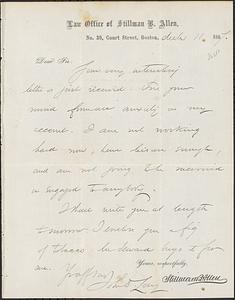 Law Office of Stillman B. Allen,
No. 39, Court Street, Boston, July 11, 186
Dear Sir.
Your very interesting
letter is just received. For your
mind from anxiety on my
account. I am not working
hard now, have leisure enough,
and am not going to be married
or engaged to anybody.
I shall write you at length
tomorrow. I enclose you a
of
me.
Yours, respectfully,
Stillman B. Allen
John D. Long